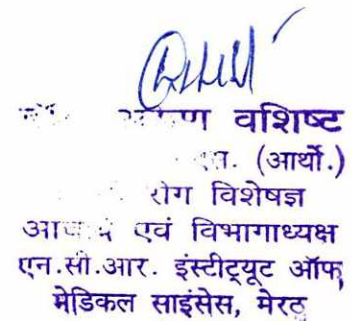 वशिष्ट
(आर्थो.)
रोग विशेषज्ञ
एवं विभागाध्यक्ष
एन.सी.आर. इंस्टीट्यूट ऑफ
मेडिकल साइंसेस, मेरठ